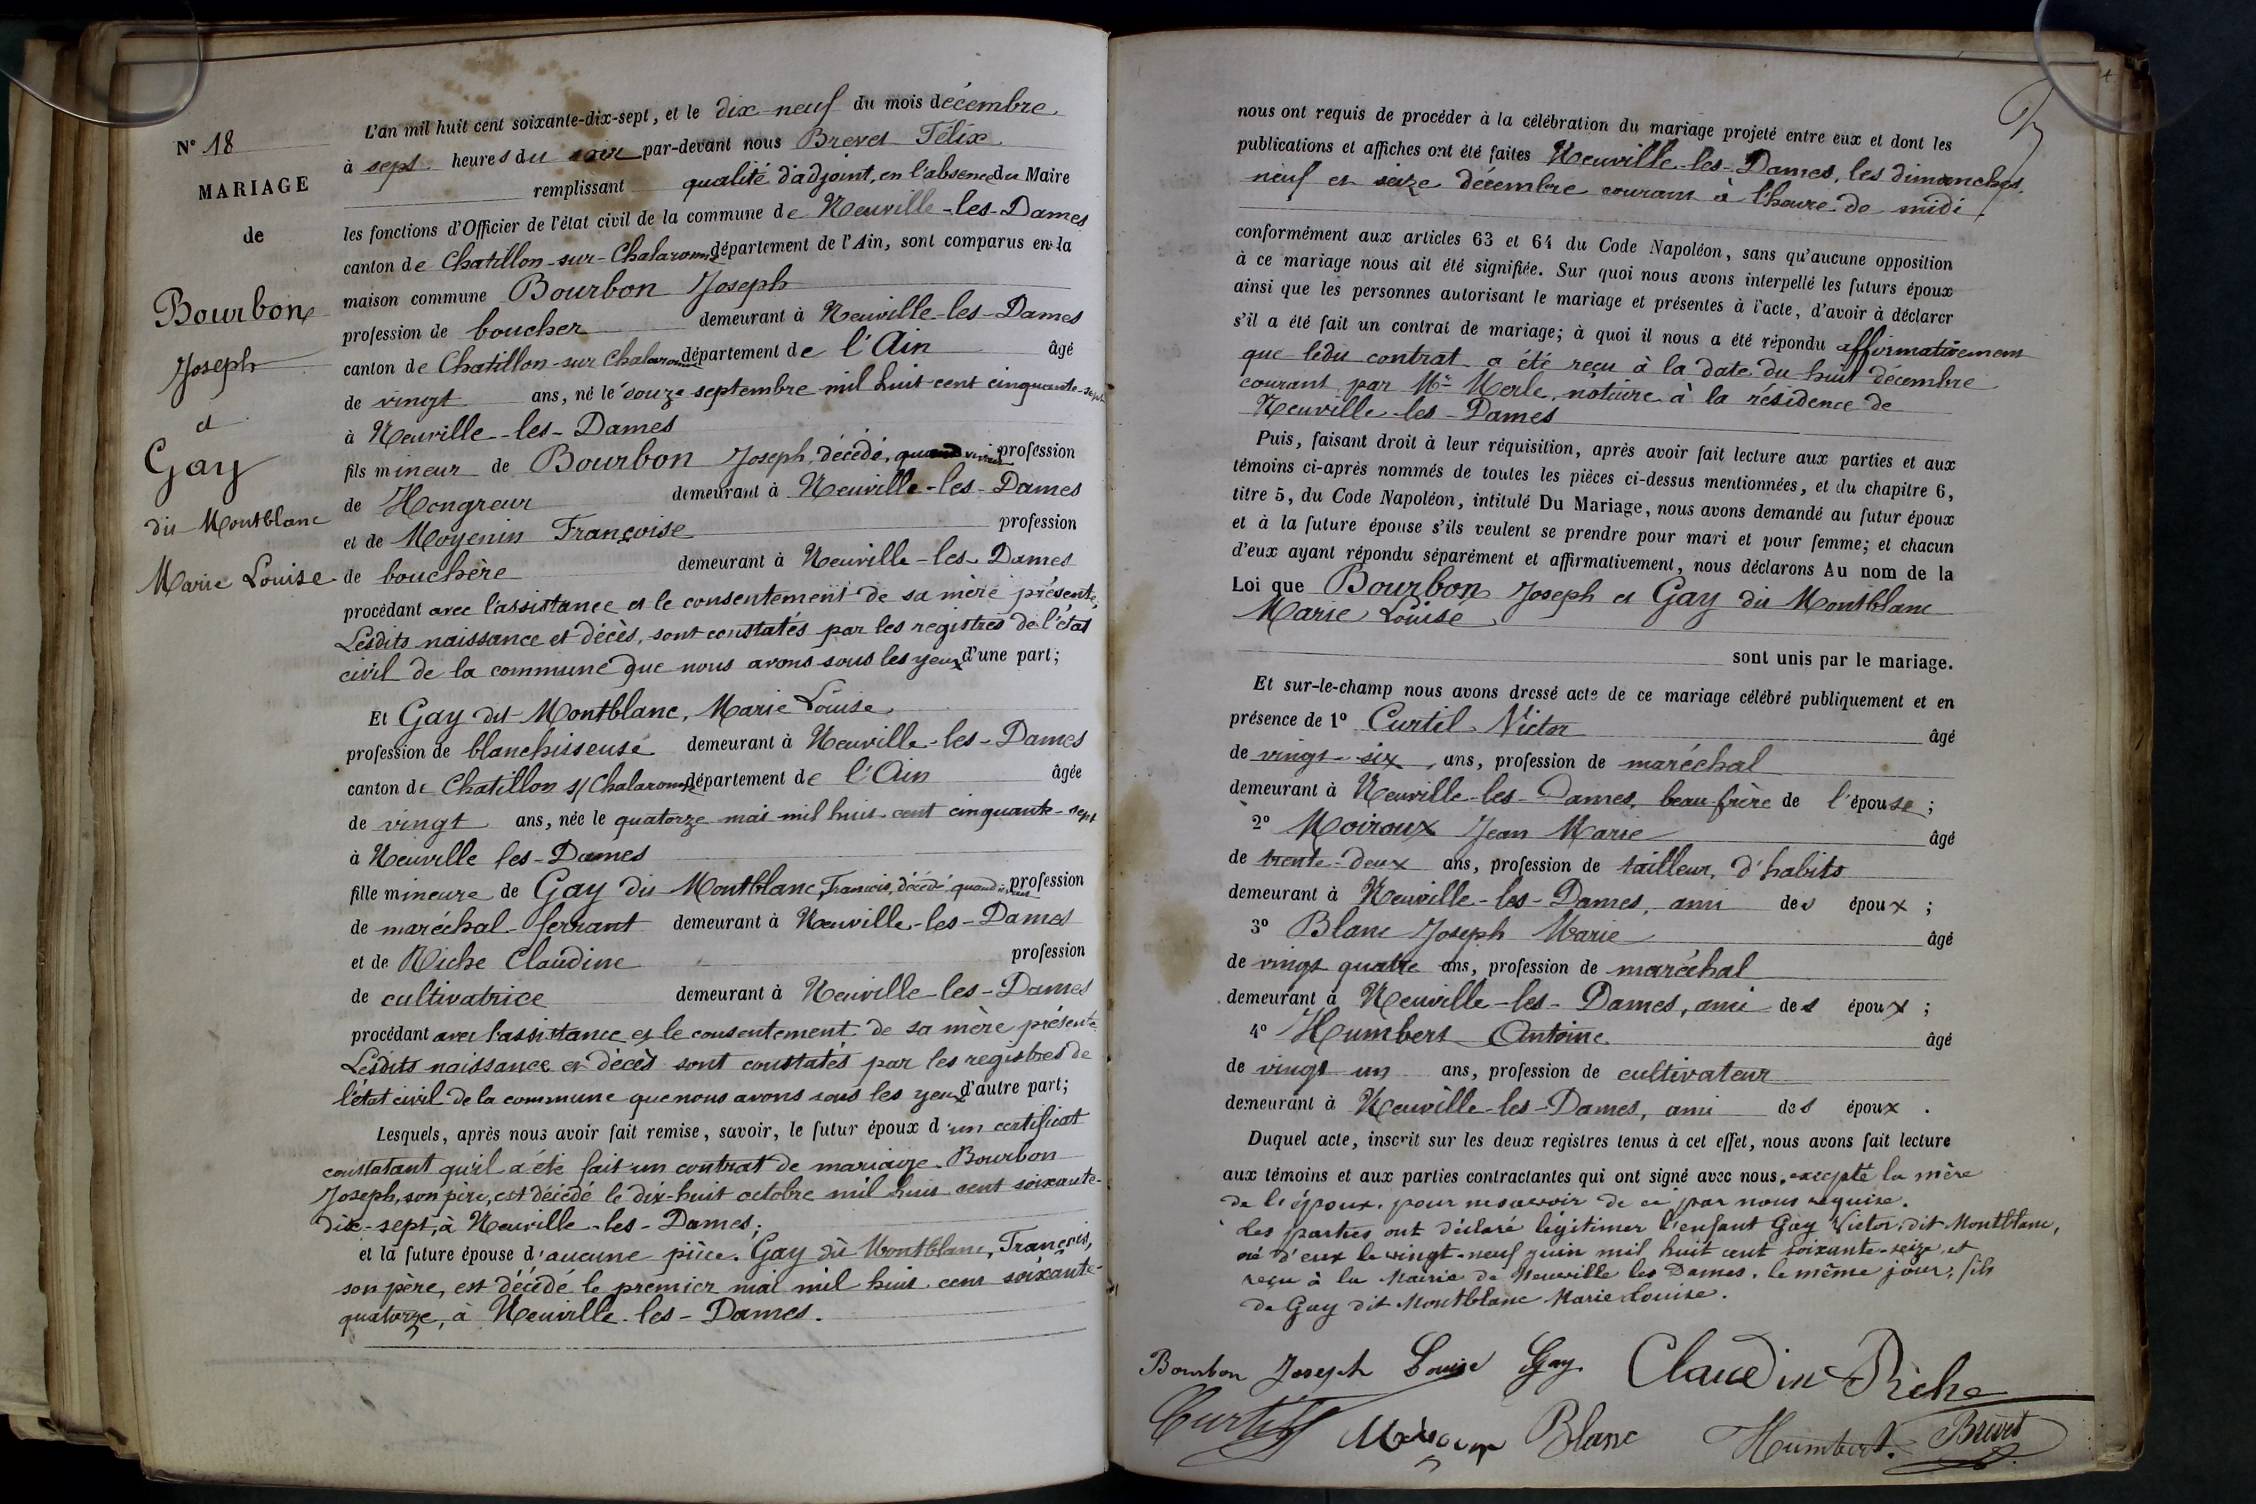 N° 18
MARIAGE
de
Bourbon
Joseph
et
Gay
dit Montblanc
Marie Louise
L'an mil huit cent soixante-dix-sept, et le dix-neuf du mois décembre
à sept heures du soir par-devant nous Brevet Félix
remplissant qualité d'adjoint, en l'absence du Maire
les fonctions d'Officier de l'état civil de la commune de Neuville-les-Dames
canton de Chatillon-sur-Chalaronne département de l'Ain, sont comparus en la
maison commune Bourbon Joseph
profession de boucher demeurant à Neuville-les-Dames
canton de Chatillon-sur Chalaronne département de l'Ain âgé
de vingt ans, né le douze septembre mil huit-cent cinquante-sept
à Neuville-les-Dames
fils mineur de Bourbon Joseph, décédé, quand vivait profession
de Hongreur demeurant à Neuville-les-Dames
et de Moyenin Françoise profession
de bouchère demeurant à Neuville-les-Dames
procédant avec l'assistance et le consentement de sa mère présente,
Lesdits naissance et décès, sont constatés par les registres de l'état
civil de la commune que nous avons sous les yeux d'une part;
Et Gay dit Montblanc, Marie Louise
profession de blanchisseuse demeurant à Neuville-les-Dames
canton de Chatillon s/ Chalaronne département de l'Ain âgée
de vingt ans, née le quatorze mai mil huit cent cinquante-sept
à Neuville les-Dames
fille mineure de Gay dit Montblanc, François, décédé quand vivait profession
de maréchal-ferrant demeurant à Neuville-les-Dames
et de Riche Claudine profession
de cultivatrice demeurant à Neuville-les-Dames
procédant avec l'assistance et le consentement de sa mère présente
Lesdits naissance et décès sont constatés par les registres de
l'état civil de la commune que nous avons sous les yeux d'autre part;
Lesquels, après nous avoir fait remise, savoir, le futur époux d'un certificat
constatant qu'il a été fait un contrat de mariage. Bourbon
Joseph, son père, est décédé le dix-huit octobre mil huit cent soixante-
dix-sept, à Neuville-les-Dames;
et la future épouse d'aucune pièce. Gay dit Montblanc, François,
son père, est décédé le premier mai mil huit cent soixante-
quatorze, à Neuville-les-Dames.
nous ont requis de procéder à la célébration du mariage projeté entre eux et dont les
publications et affiches ont été faites Neuville-les-Dames, les dimanches
neuf et seize décembre courant à l'heure de midi
conformément aux articles 63 et 64 du Code Napoléon, sans qu'aucune opposition
à ce mariage nous ait été signifiée. Sur quoi nous avons interpellé les futurs époux
ainsi que les personnes autorisant le mariage et présentes à l'acte, d'avoir à déclarer
s'il a été fait un contrat de mariage; à quoi il nous a été répondu affirmativement
que ledit contrat a été reçu à la date du huit décembre
courant par Me Merle, notaire à la résidence de
Neuville-les-Dames
Puis, faisant droit à leur réquisition, après avoir fait lecture aux parties et aux
témoins ci-après nommés de toutes les pièces ci-dessus mentionnées, et du chapitre 6,
titre 5, du Code Napoléon, intitulé Du Mariage, nous avons demandé au futur époux
et à la future épouse s'ils veulent se prendre pour mari et pour femme; et chacun
d'eux ayant répondu séparément et affirmativement, nous déclarons Au nom de la
Loi que Bourbon Joseph et Gay dit Montblanc
Marie Louise
sont unis par le mariage.
Et sur-le-champ nous avons dressé acte de ce mariage célébré publiquement et en
présence de 1° Curtil Victor âgé
de vingt-six ans, profession de maréchal
demeurant à Neuville-les-Dames, beau-frère de l'épouse;
2° Moiroux Jean Marie âgé
de trente-deux ans, profession de tailleur d'habits
demeurant à Neuville-les-Dames, ami des époux;
3° Blanc Joseph Marie âgé
de vingt quatre ans, profession de maréchal
demeurant à Neuville-les-Dames, ami des époux;
4° Humbert Antoine âgé
de vingt un ans, profession de cultivateur
demeurant à Neuville-les-Dames, ami des époux.
Duquel acte, inscrit sur les deux registres tenus à cet effet, nous avons fait lecture
aux témoins et aux parties contractantes qui ont signé avec nous, excepté la mère
de l'époux, pour ne savoir de ce par nous requise.
Les parties ont déclaré légitimer l'enfant Gay Victor, dit Montblanc,
né d'eux le vingt-neuf juin mil huit cent soixante-seize, et
reçu à la Mairie de Neuville les Dames, le même jour, fils
de Gay dit Montblanc Marie Louise.
Bourbon Joseph Louise Gay Claudine Riche
Curtil Moiroux Blanc Humbert. Brevet